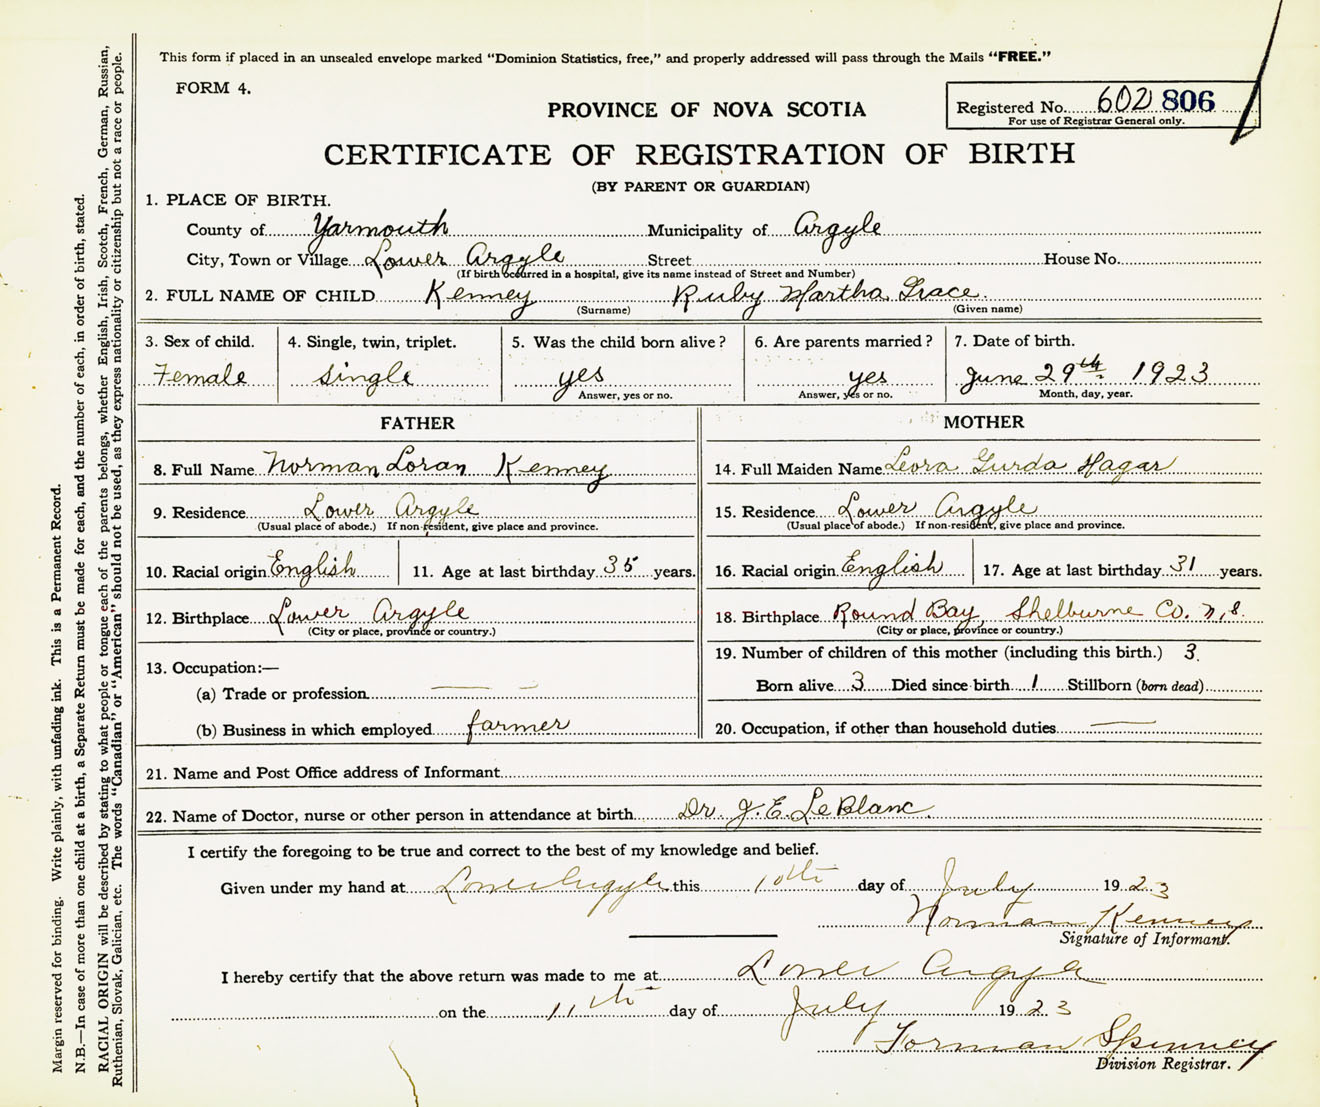 This form if placed in an unsealed envelope marked "Dominion Statistics, free," and properly addressed will pass through the Mails "FREE."
FORM 4.
PROVINCE OF NOVA SCOTIA
Registered No. 602 806
For use of Registrar General only.
CERTIFICATE OF REGISTRATION OF BIRTH
(BY PARENT OR GUARDIAN)
1. PLACE OF BIRTH.
County of Yarmouth Municipality of Argyle
City, Town or Village Lower Argyle Street House No.
(If birth occurred in a hospital, give its name instead of Street and Number)
2. FULL NAME OF CHILD Kenney Ruby Martha Grace.
(Surname) (Given name)
3. Sex of child. 4. Single, twin, triplet. 5. Was the child born alive? 6. Are parents married? 7. Date of birth.
Female single yes yes June 29th 1923
Answer, yes or no. Answer, yes or no. Month, day, year.
FATHER MOTHER
8. Full Name Norman Loran Kenney 14. Full Maiden Name Leora Gurda Hagar
9. Residence Lower Argyle 15. Residence Lower Argyle
(Usual place of abode.) If non-resident, give place and province. (Usual place of abode.) If non-resident, give place and province.
10. Racial origin English 11. Age at last birthday 35 years. 16. Racial origin English 17. Age at last birthday 31 years.
12. Birthplace Lower Argyle 18. Birthplace Round Bay, Shelburne Co. N.S.
(City or place, province or country.) (City or place, province or country.)
13. Occupation:— 19. Number of children of this mother (including this birth.) 3.
(a) Trade or profession Born alive 3 Died since birth 1 Stillborn (born dead)
(b) Business in which employed farmer 20. Occupation, if other than household duties
21. Name and Post Office address of Informant
22. Name of Doctor, nurse or other person in attendance at birth Dr. J. E. LeBlanc.
I certify the foregoing to be true and correct to the best of my knowledge and belief.
Given under my hand at Lower Argyle this 10th day of July 1923
Norman Kenney
Signature of Informant.
I hereby certify that the above return was made to me at Lower Argyle
on the 11th day of July 1923
Forman Spinney
Division Registrar.
Margin reserved for binding. Write plainly, with unfading ink. This is a Permanent Record.
N.B.—In case of more than one child at a birth, a Separate Return must be made for each, and the number of each, in order of birth, stated.
RACIAL ORIGIN will be described by stating to what people or tongue each of the parents belongs, whether English, Irish, Scotch, French, German, Russian,
Ruthenian, Slovak, Galician, etc. The words "Canadian" or "American" should not be used, as they express nationality or citizenship but not a race or people.